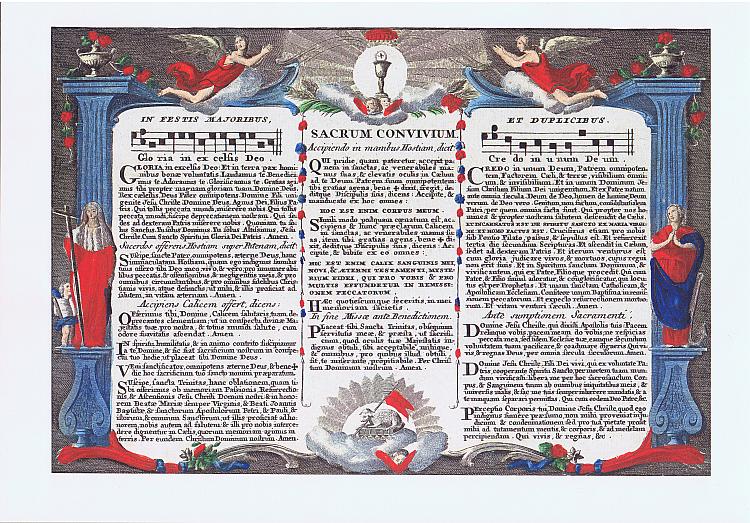 IN FESTIS MAJORIBUS,
Glo ria in ex celsis Deo.
GLORIA in excelsis Deo. Et in terra pax homi
nibus bonæ voluntatis. Laudamus te. Benedici
mus te. Adoramus te. Glorificamus te. Gratias agi
mus tibi propter magnam gloriam tuam. Domine Deus,
Rex cœlestis, Deus Pater omnipotens. Domine Fili uni
genite Jesu Christe. Domine Deus, Agnus Dei, Filius Pa
tris. Qui tollis peccata mundi, miserere nobis. Qui tollis
peccata mundi, suscipe deprecationem nostram. Qui se
des ad dexteram Patris miserere nobis. Quoniam tu so
lus Sanctus. Tu solus Dominus. Tu solus Altissimus, Jesu
Christe. Cum Sancto Spiritu in Gloria Dei Patris. Amen.
Sacerdos offerens Hostiam super Patenam, dicit
Suscipe, sancte Pater, omnipotens, æterne Deus, hanc
immaculatam Hostiam, quam ego indignus famulus
tuus offero tibi Deo meo vivo & vero, pro innumerabi
libus peccatis, & offensionibus & negligentiis meis, & pro
omnibus circumstantibus, & pro omnibus fidelibus Chris
tianis vivis, atque defunctis, ut mihi, & illis proficiat ad
salutem, in vitam æternam. Amen.
Accipiens Calicem offert, dicens:
Offerimus tibi, Domine, Calicem salutaris, tuam de
precantes clementiam, ut in conspectu divinæ Ma
jestatis tuæ, pro nostra, & totius mundi salute, cum
odore suavitatis ascendat. Amen.
In spiritu humilitatis, & in animo contrito suscipiamur
a te Domine, & sic fiat sacrificium nostrum in conspec
tu tuo hodie, ut placeat tibi Domine Deus.
Veni sanctificator, omnipotens æterne Deus, & bene✠
dic hoc sacrificium tuo sancto nomini præparatum.
Suscipe, sancta Trinitas, hanc oblationem, quam ti
bi offerimus ob memoriam Passionis, Resurrectio
nis, & Ascensionis Jesu Christi Domini nostri & in hono
rem Beatæ Mariæ semper Virginis, & Beati Joannis
Baptistæ & sanctorum Apostolorum Petri, & Pauli, &
istorum, & omnium Sanctorum, ut illis proficiat ad ho
norem, nobis autem ad salutem & illi pro nobis interce
dere dignentur in Cœlis, quorum memoriam agimus in
terris. Per eundem Christum Dominum nostrum. Amen.
SACRUM CONVIVIUM.
Accipiendo in manibus Hostiam, dicit
QUI pridie, quam pateretur, accepit pa
nem in sanctas, ac venerabiles ma
nus suas, & elevatis oculis in Cœlum
ad te Deum Patrem suum omnipotentem,
tibi gratias agens, bene ✠ dixit, fregit, de
ditque Discipulis suis, dicens: Accipite, &
manducate ex hoc omnes:
HOC EST ENIM CORPUS MEUM.
Simili modo postquam cœnatum est, ac
cipiens & hunc præclarum Calicem
in sanctas, ac venerabiles manus su
as, item tibi gratias agens, bene ✠ di
xit, deditque Discipulis suis, dicens: Ac
cipite, & bibite ex eo omnes:
HIC EST ENIM CALIX SANGUINIS MEI
NOVI, & ÆTERNI TESTAMENTI, MYSTE
RIUM FIDEI, QUI PRO VOBIS & PRO
MULTIS EFFUNDETUR IN REMISSI
ONEM PECCATORUM.
Hæc quotiescunque feceritis, in mei
memoriam facietis.
In fine Missæ ante Benedictionem.
Placeat tibi, Sancta Trinitas, obsequium
servitutis meæ, & præsta, ut sacrifi
cium, quod oculis tuæ Majestatis in
dignus obtuli, tibi acceptabile, mihique,
& omnibus, pro quibus illud obtuli,
sit, te miserante, propitiabile. Per Chris
tum Dominum nostrum. Amen.
ET DUPLICIBUS.
Cre do in unum De um.
CREDO in unum Deum, Patrem omnipoten
tem, Factorem Cœli, & terræ, visibilium omni
um, & invisibilium. Et in unum Dominum Je
sum Christum Filium Dei unigenitum. Et ex Patre natum
ante omnia sæcula. Deum de Deo, lumen de lumine, Deum
verum de Deo vero. Genitum, non factum, consubstantialem
Patri, per quem omnia facta sunt. Qui propter nos ho
mines, & propter nostram salutem descendit de Cœlis.
ET INCARNATUS EST DE SPIRITU SANCTO EX MARIA VIRGI
NE: ET HOMO FACTUS EST. Crucifixus etiam pro nobis
sub Pontio Pilato, passus, & sepultus est. Et resurrexit
tertia die secundum Scripturas. Et ascendit in Cœlum,
sedet ad dexteram Patris. Et iterum venturus est
cum gloria judicare vivos, & mortuos, cujus regni
non erit finis. Et in Spiritum Sanctum, Dominum, &
vivificantem, qui ex Patre, Filioque procedit. Qui cum
Patre, & Filio simul adoratur, & conglorificatur, qui locu
tus est per Prophetas. Et unam sanctam, Catholicam, &
Apostolicam Ecclesiam. Confiteor unum Baptisma in remis
sionem peccatorum. Et expecto resurrectionem mortuo
rum. Et vitam venturi sæculi. Amen.
Ante sumptionem Sacramenti.
Domine Jesu Christe, qui dixisti Apostolis tuis: Pacem
relinquo vobis, pacem meam do vobis, ne respicias
peccata mea, sed fidem Ecclesiæ tuæ, eamque secundum
voluntatem tuam pacificare, & coadunare digneris. Qui vi
vis, & regnas Deus, per omnia sæcula sæculorum. Amen.
Domine Jesu Christe, Fili Dei vivi, qui ex voluntate Pa
tris, cooperante Spiritu Sancto, per mortem tuam mun
dum vivificasti, libera me per hoc sacrosanctum Cor
pus, & Sanguinem tuum ab omnibus iniquitatibus meis, &
universis malis, & fac me tuis semper inhærere mandatis, & a
te nunquam separari permittas. Qui cum eodem Deo Patre, &c.
Perceptio Corporis tui, Domine Jesu Christe, quod ego
indignus sumere præsumo, non mihi proveniat in ju
dicium & condemnationem, sed pro tua pietate prosit
mihi ad tutamentum mentis, & corporis, & ad medelam
percipiendam. Qui vivis, & regnas, &c.